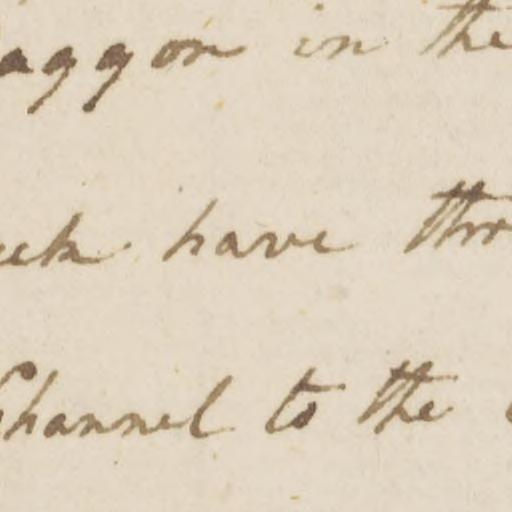 aggon in the
eek have thro
Channel to the